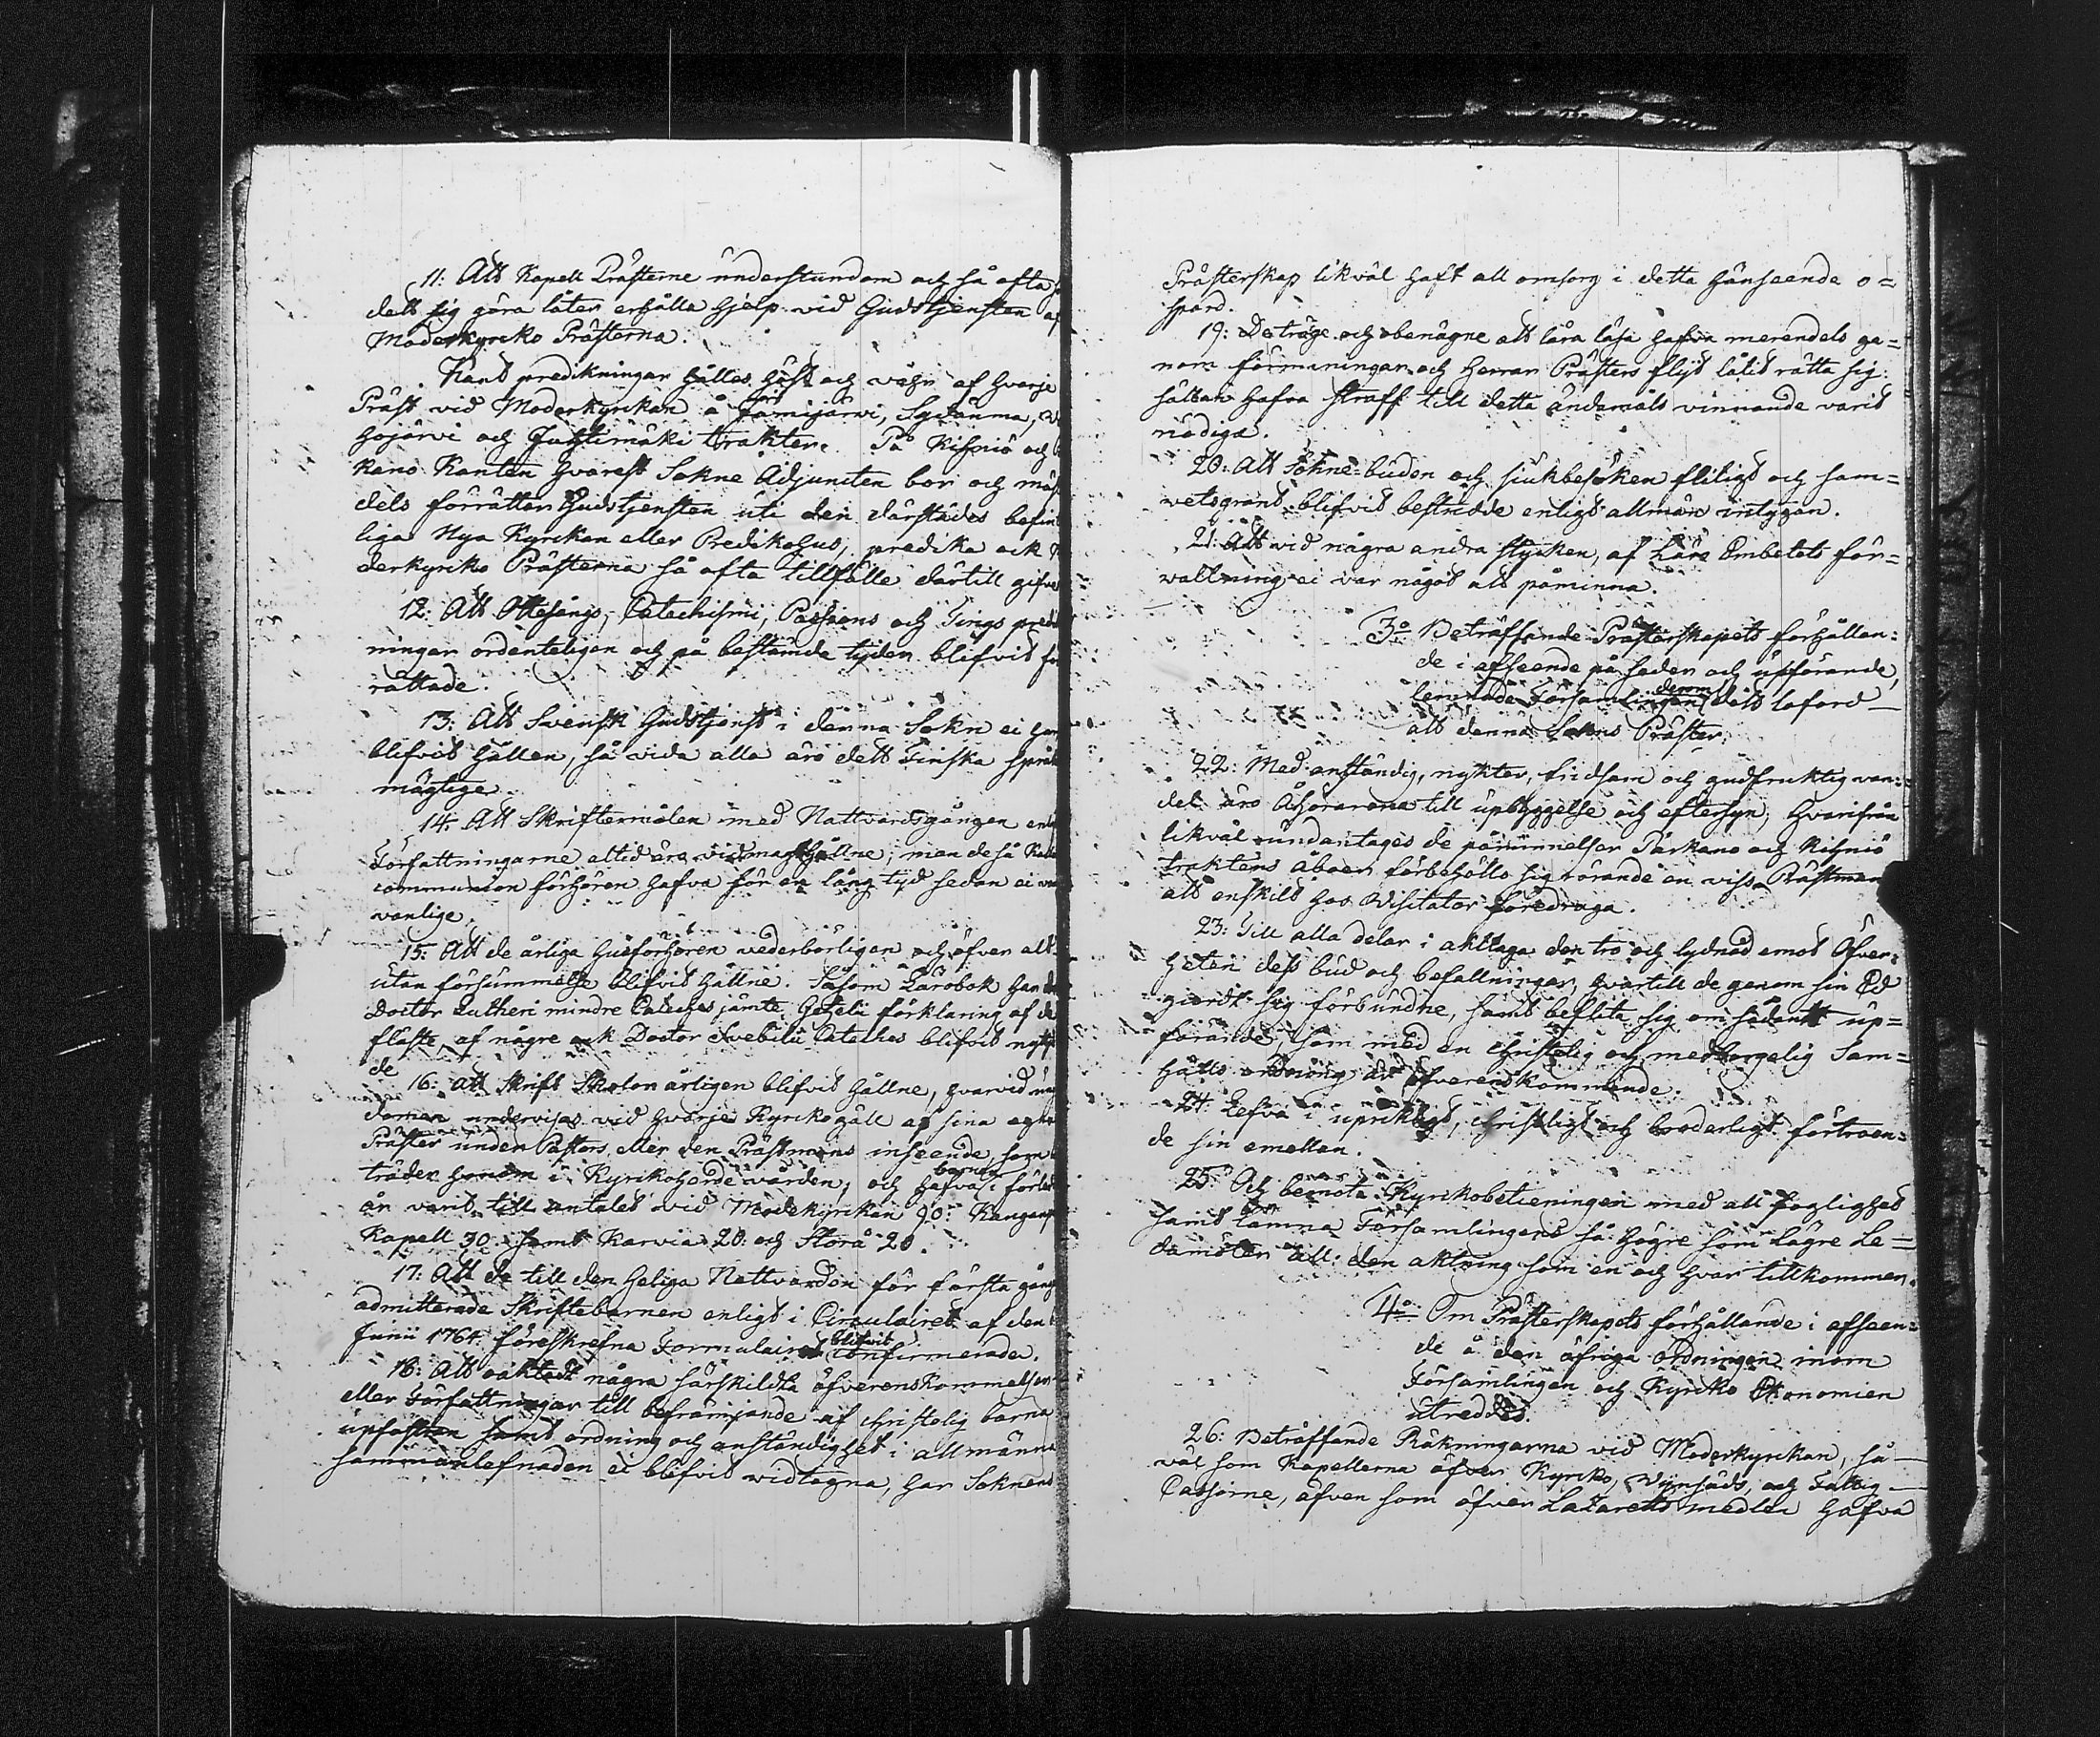 11: Att Kapell Prästerne understundom och så ofta
dett sig göra låter erhålla hjelp vid Gudstjensten af
Moderkyrko Prästerna.
Kant predikningar hålles höst och våhr af hvarje
Präst vid Moderkyrkan å Jämijärvi, Sydänma,
hojärvi och Juhtimäki trakter. På Kihniö och
kano Kanten hvarest Sokne Adjuncten bor och mäst
dels förrättar Gudstjensten uti den därstädes befin
liga Nya Kyrkan eller Predikohus, predika ock
derkyrko Prästerna så ofta tillfälle därtill gifves
12: Att Ottesångs, Catechismi, Passions och Tings predik
ningar ordenteligen och på bestämde tijder blifvit för
rättade.
13: Att Svensk Gudstjenst i denna Sokn ei har
blifvit hållen, så vida alla äro dett Finska språk
mägtige.
14: Att Skriftermålen med Nattvardsgången enl
Författningarne altid äro vid magt hållne; men de så Kalla
communion förhören hafva för en lång tijd sedan ei
vanlige.
15: Att de årliga husförhören vederbörligen och öfver alt
utan försummelse blifvit hållne. Såsom Lärobok har
Doctor Lutheri mindre Cateches jämte Gezelii förklaring af de
fläste, af någre ock Doctor Svebilii Cateches blifvit nytja
de
16: att Skrift Skolor årligen blifvit hållne, hvarvid ung
domen undervises vid hvarje Kyrkogäll af sina egna
Präster under Pastors eller den Prästmans inseende, som
träder honom i Kyrkoherde vården; och hafva barnen i förled
år varit till antalet vid Moderkyrkan 90: Kangan
Kapell 30. samt Karvia 20: och Storå 20.
17: Att de till den heliga Nattvarden för första gång
admitterade Skriftebarnen enligt i Circulairet af den
Junii 1764 föreskrefna Formulairet blifvit confirmerade.
18: Att oaktadt några särskildta öfverenskommelser
eller Författningar till befrämjande af christelig barna
upfostran samt ordning och anständighet i allmänna
sammanlefnaden ei blifvit widtagna, har Soknens
Prästerskap likväl haft all omsorg i detta hänseende o=
spard.
19: De tröge och obenägne att lära läsa hafva merendels ge=
nom förmaningar och Herrar Prästers flijt låtit rätta sig:
sällan hafva straff till detta ändamåls vinnande varit
nödiga.
20: Att Sokne-buden och siukbesöken flitigt och sam=
vetsgrant blifvit bestridde enligt allmän intygan.
21: Att vid några andra stycken, af Läro Embetets för=
waltning ei var något att påminna.
3:o Beträffande Prästerskapets förhållan=
de i afseende på seder och upförande,
lemnade Församlingen denom dett loford
att denna Sokns Präster.
22: Med anständig, nykter, fridsam och gudfruktig van=
del äro Åhörarena till upbyggelse och eftersyn, hvarifrån
likväl undantages de påminnelser Parkano och Kihniö
traktens åboer förbehöllo sig rörande en viss Prästman
att enskilt hos Visitator föredraga.
23: Till alla delar i akttaga den tro och lydnad emot Öfver=
heten dess bud och befallningar, hvartill de genom sin Ed
giordt sig förbundne, samt beflita sig om sådant up=
förande, som med en christelig och medborgelig Sam=
hälls ordning är öfverenskommende.
24: Lefva i uprichtigt, christligt och broderligt förtroen=
de sin emellan.
25: Och bemöta Kyrkobetieningen med all foglighet
samt lämna Församlingens så högre som lägre Le=
damöter all den aktning som en och hvar tillkommer.
4:o Om Prästerskapets förhållande i afseen=
de å den öfriga ordningen inom
Församlingen och Kyrko Økonomien
utreddes.
26: Beträffande Räkningarna vid Moderkyrkan, så
väl som Kapellerna öfver Kyrko, Vijnhuds, och Fattig
Cassorne, äfven som öfver Lazaretts medlen hafva